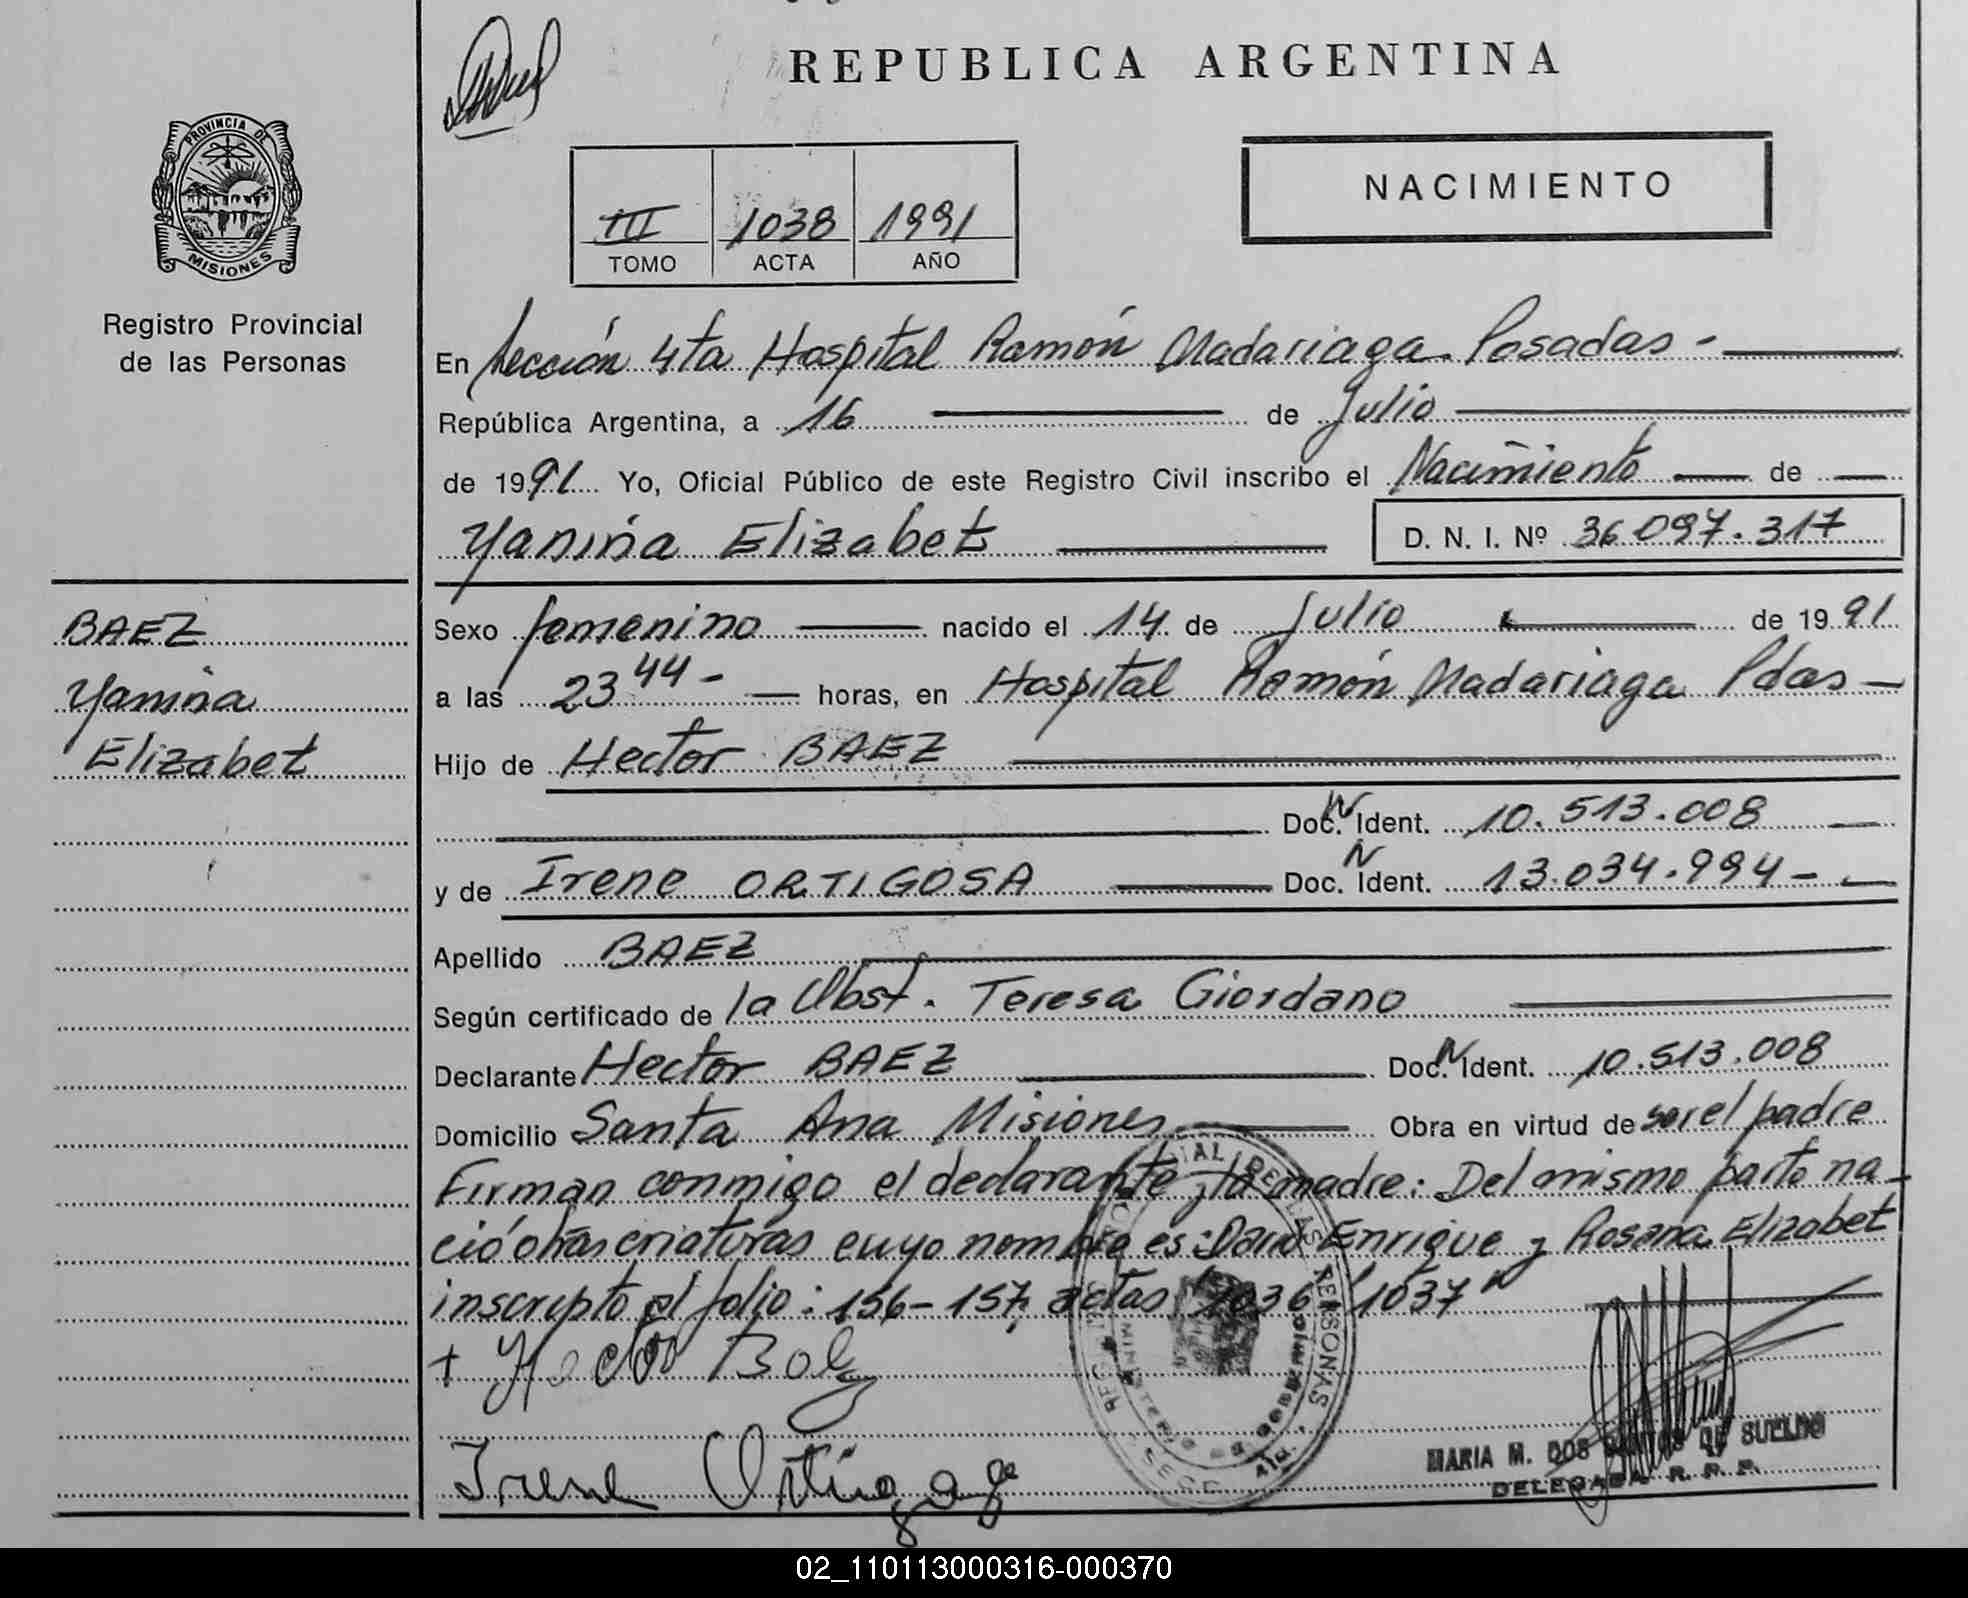 REPUBLICA ARGENTINA
PROVINCIA DE
MISIONES
Registro Provincial
de las Personas
III 1038 1991
TOMO ACTA AÑO
NACIMIENTO
En Sección 4ta Hospital Ramón Madariaga. Posadas -
República Argentina, a 16 de Julio
de 1991 Yo, Oficial Público de este Registro Civil inscribo el Nacimiento de
Yanina Elizabet D. N. I. Nº 36.097.317
BAEZ
Yanina
Elizabet
Sexo femenino nacido el 14 de Julio de 1991
a las 23 44 - horas, en Hospital Ramón Madariaga Pdas -
Hijo de Hector BAEZ
Doc. N Ident. 10.513.008
y de Irene ORTIGOSA Doc. N Ident. 13.034.994 -
Apellido BAEZ
Según certificado de la Obst. Teresa Giordano
Declarante Hector BAEZ Doc. N Ident. 10.513.008
Domicilio Santa Ana Misiones Obra en virtud de ser el padre
Firman conmigo el declarante y la madre: Del mismo parto na-
ció otras criaturas cuyo nombre es: Dario Enrique y Rosana Elizabet
inscripto al folio: 156-157, actas 1036/1037"
+ Hector Baez
Irene Ortigoza
MARIA M. DOS SANTOS DE
DELEGADA R. P. P.
02_110113000316-000370